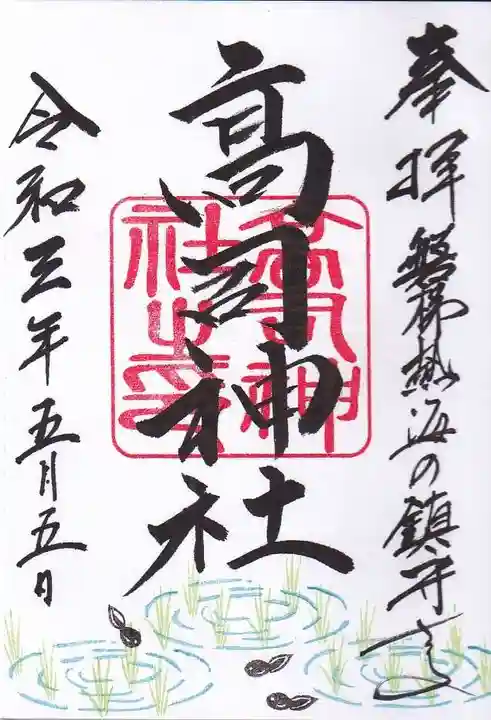 奉拝 磐梯熱海の鎮守さま
高司神社
高司神社之印
令和三年五月五日